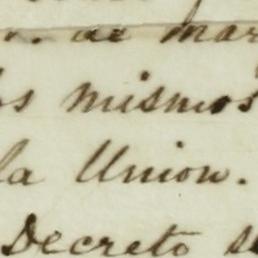 de mar
os mismos
la Union.
Decreto s